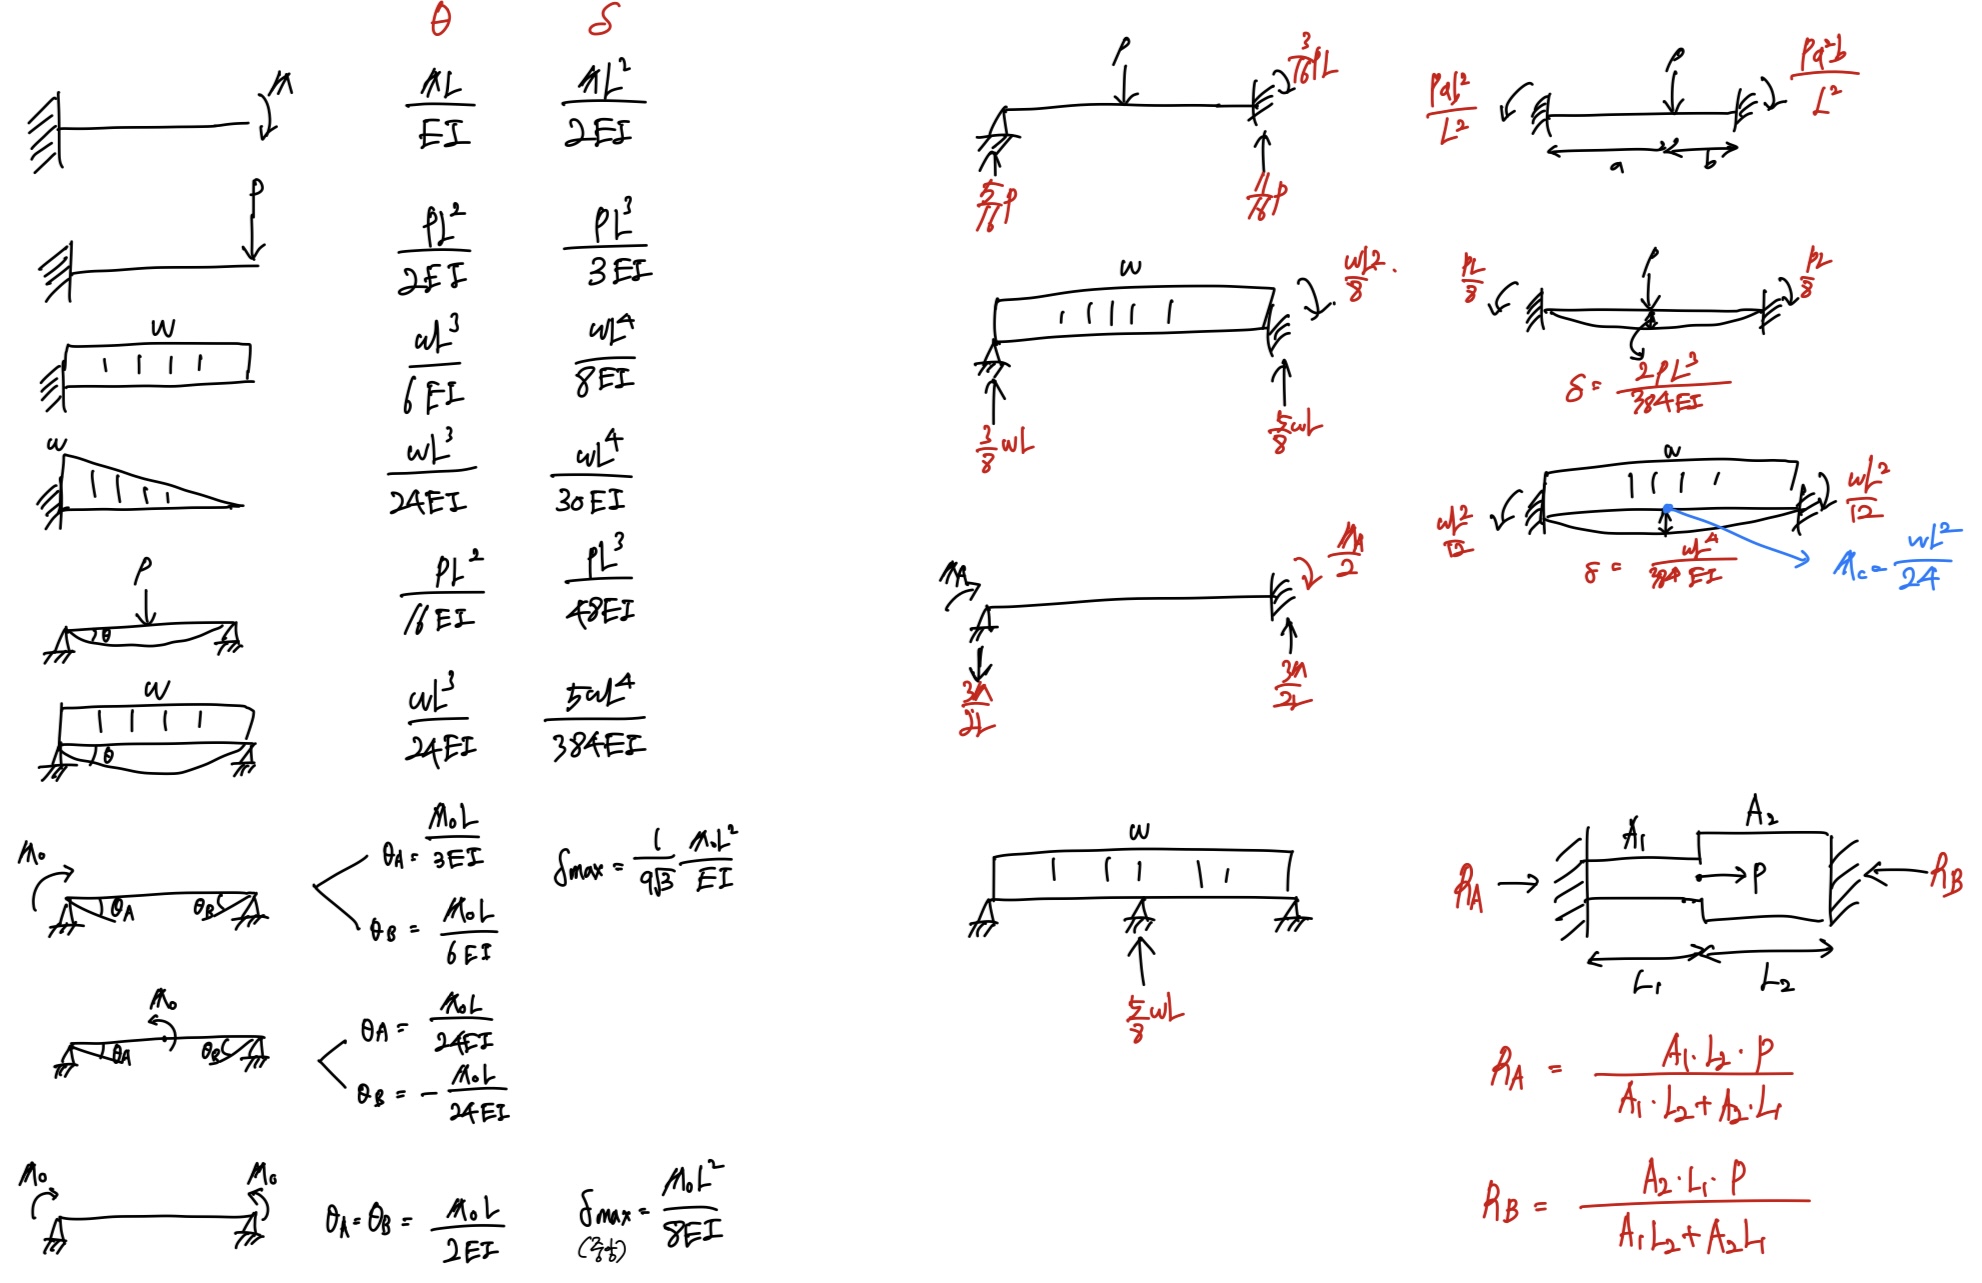 θ δ
M ML/EI ML²/2EI
P PL²/2EI PL³/3EI
w wL³/6EI wL⁴/8EI
w wL³/24EI wL⁴/30EI
P θ PL²/16EI PL³/48EI
w θ wL³/24EI 5wL⁴/384EI
M₀ θA θB
θA = M₀L/3EI
θB = M₀L/6EI
δmax = 1/9√3 M₀L²/EI
M₀ θA θB
θA = M₀L/24EI
θB = - M₀L/24EI
M₀ M₀
θA = θB = M₀L/2EI
δmax = M₀L²/8EI
(중앙)
P 3/16 PL
5/16 P 11/16 P
w wL²/8
3/8 wL 5/8 wL
MA MA/2
3M/2L 3M/2L
w
5/8 wL
Pab²/L² P Pa²b/L²
a b
PL/8 P PL/8
δ = 2PL³/384EI
w
wL²/12 wL²/12
δ = wL⁴/384EI
Mc = wL²/24
A₁ A₂
RA P RB
L₁ L₂
RA = A₁·L₂·P/A₁·L₂+A₂·L₁
RB = A₂·L₁·P/A₁L₂+A₂L₁